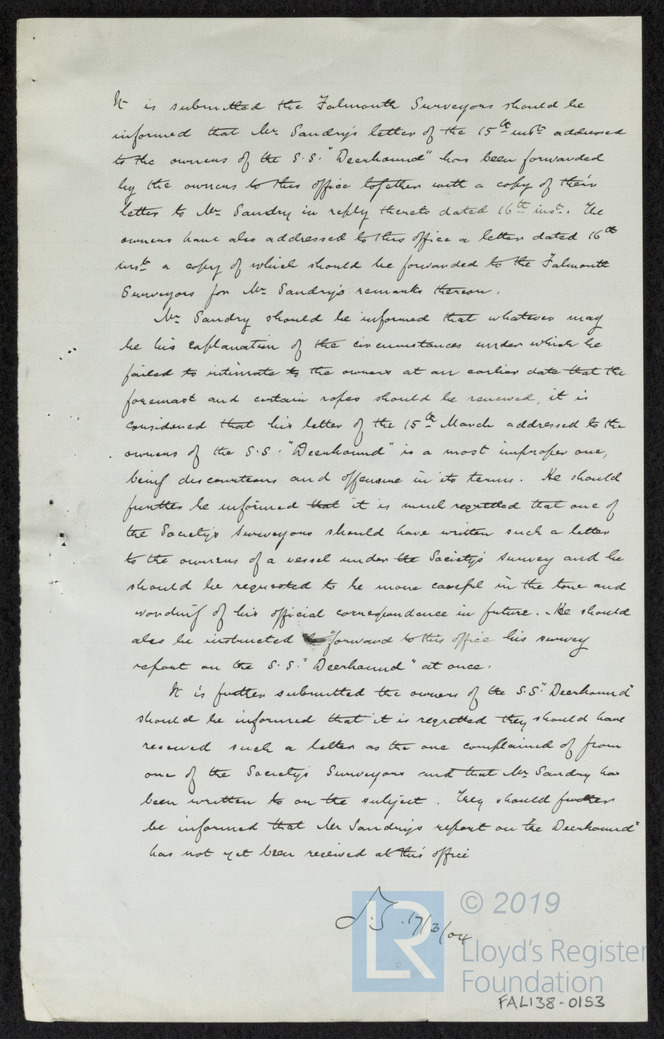 It is submitted the Falmouth Surveyors should be
informed that Mr. Sandry's letter of the 15th inst. addressed
to the owners of the S.S. "Deerhound" has been forwarded
by the owners to this office together with a copy of their
letter to Mr. Sandry in reply thereto dated 16th inst. The
owners have also addressed to this office a letter dated 16th
inst. a copy of which should be forwarded to the Falmouth
Surveyors for Mr. Sandry's remarks thereon.
Mr. Sandry should be informed that whatever may
be his explanation of the circumstances under which he
failed to intimate to the owners at an earlier date that the
foremast and certain ropes should be renewed, it is
considered that his letter of the 15th March addressed to the
owners of the S.S. "Deerhound" is a most improper one,
being discourteous and offensive in its terms. He should
further be informed that it is much regretted that one of
the Society's Surveyors should have written such a letter
to the owners of a vessel under the Society's survey and he
should be requested to be more careful in the tone and
wording of his official correspondence in future. He should
also be instructed to forward to this office his survey
report on the S.S. "Deerhound" at once.
It is further submitted the owners of the S.S. "Deerhound"
should be informed that it is regretted they should have
received such a letter as the one complained of from
one of the Society's Surveyors and that Mr. Sandry has
been written to on the subject. They should further
be informed that Mr Sandry's report on the Deerhound"
has not yet been received at this office
17/3/04
LR
© 2019
Lloyd's Register
Foundation
FAL138-0153